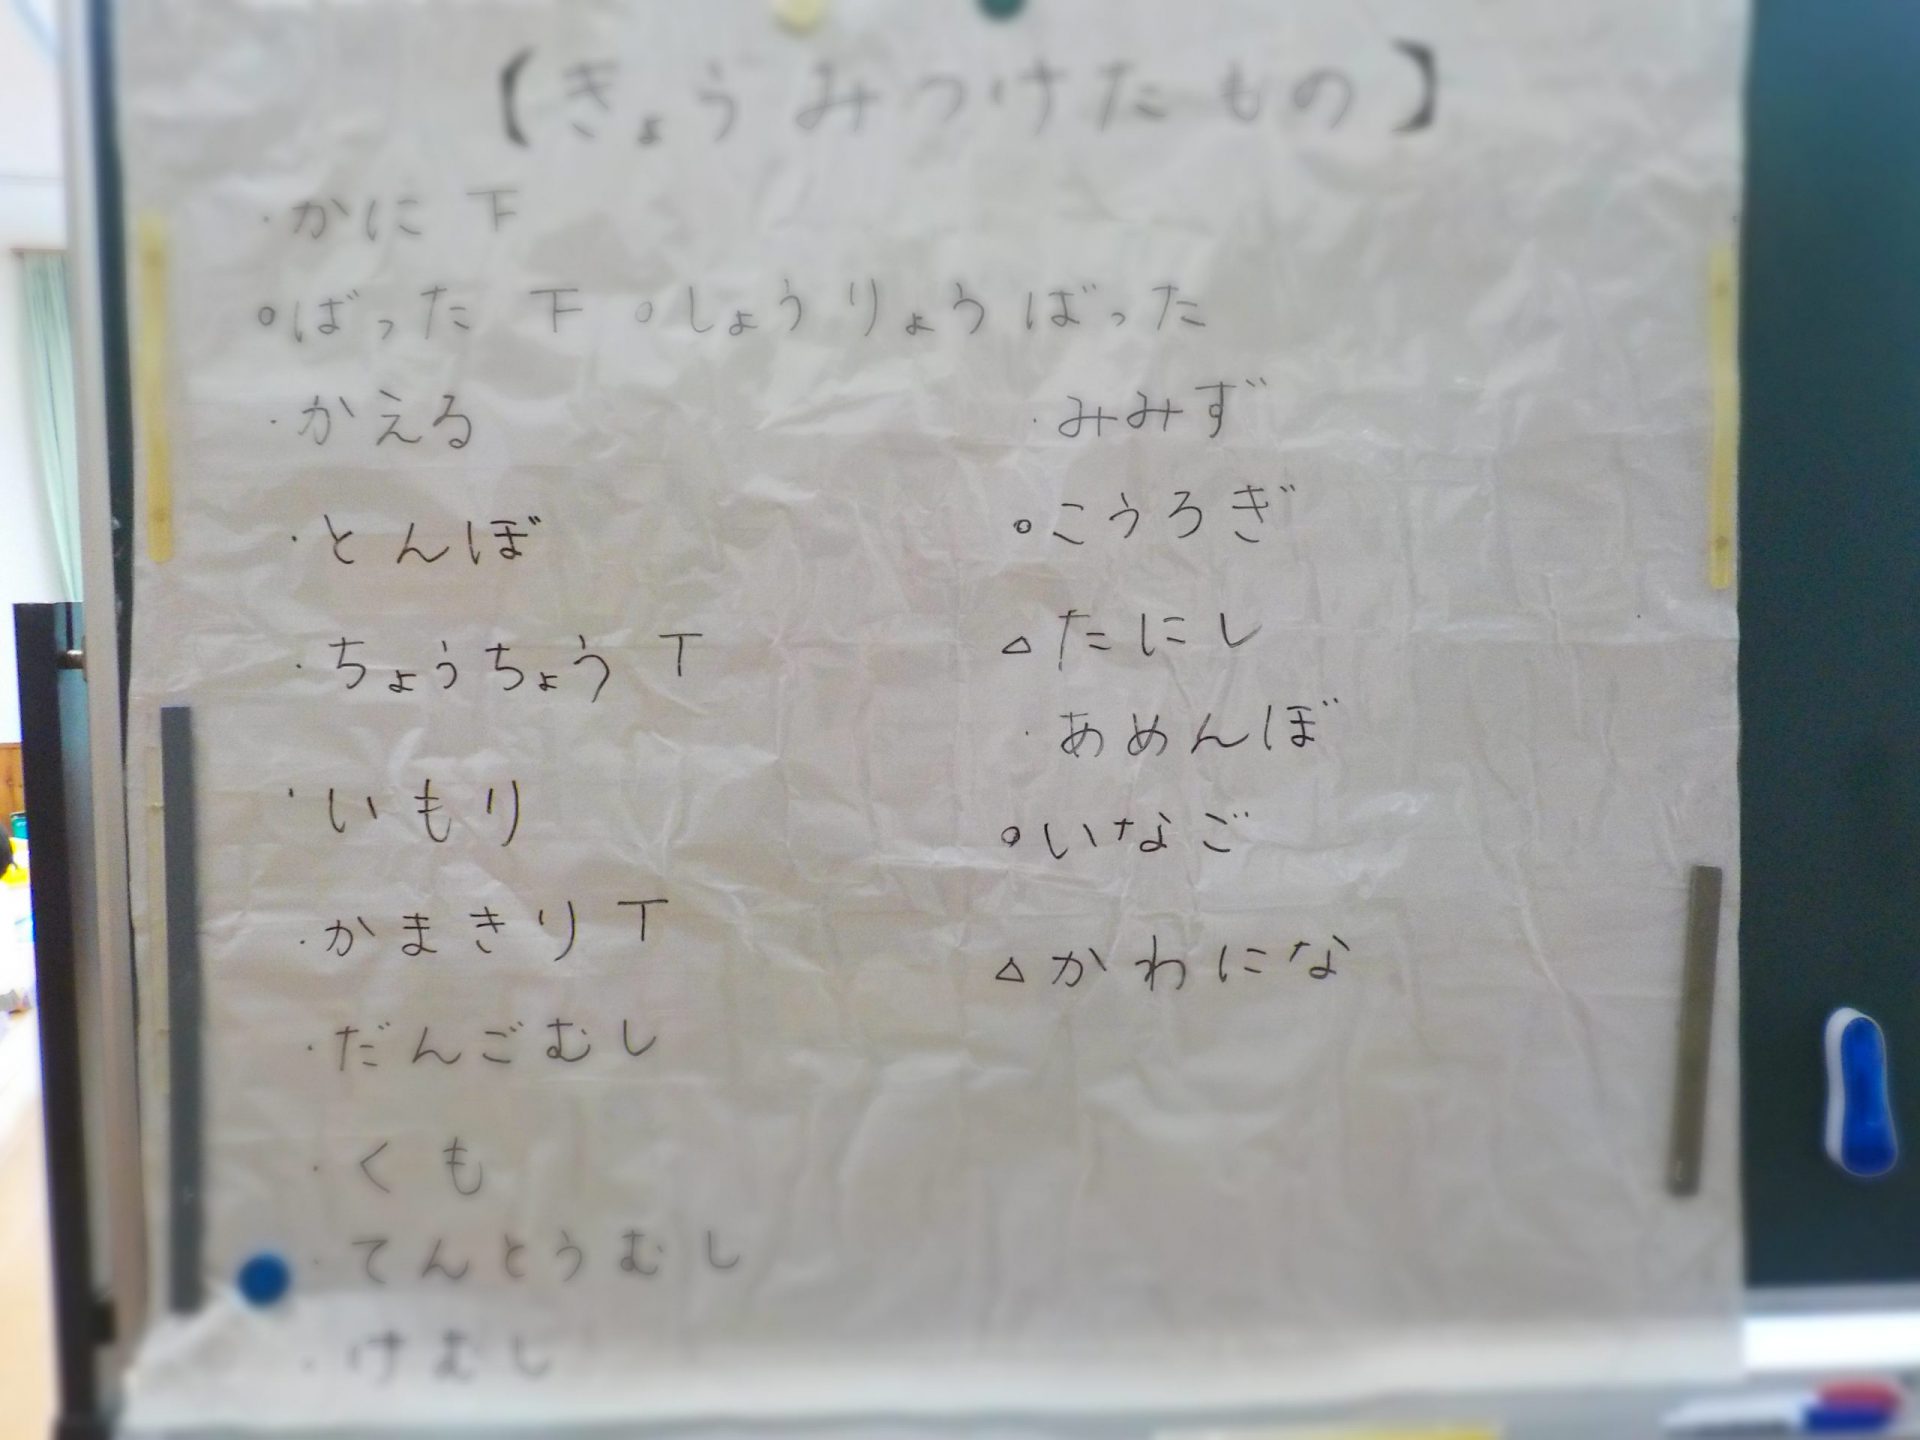 【きょうみつけたもの】
・かに 下
○ばった 下 ○しょうりょうばった
・かえる
・とんぼ
・ちょうちょう T
・いもり
・かまきり T
・だんごむし
・くも
・てんとうむし
・けむし
・みみず
○こうろぎ
△たにし
・あめんぼ
○いなご
△かわにな